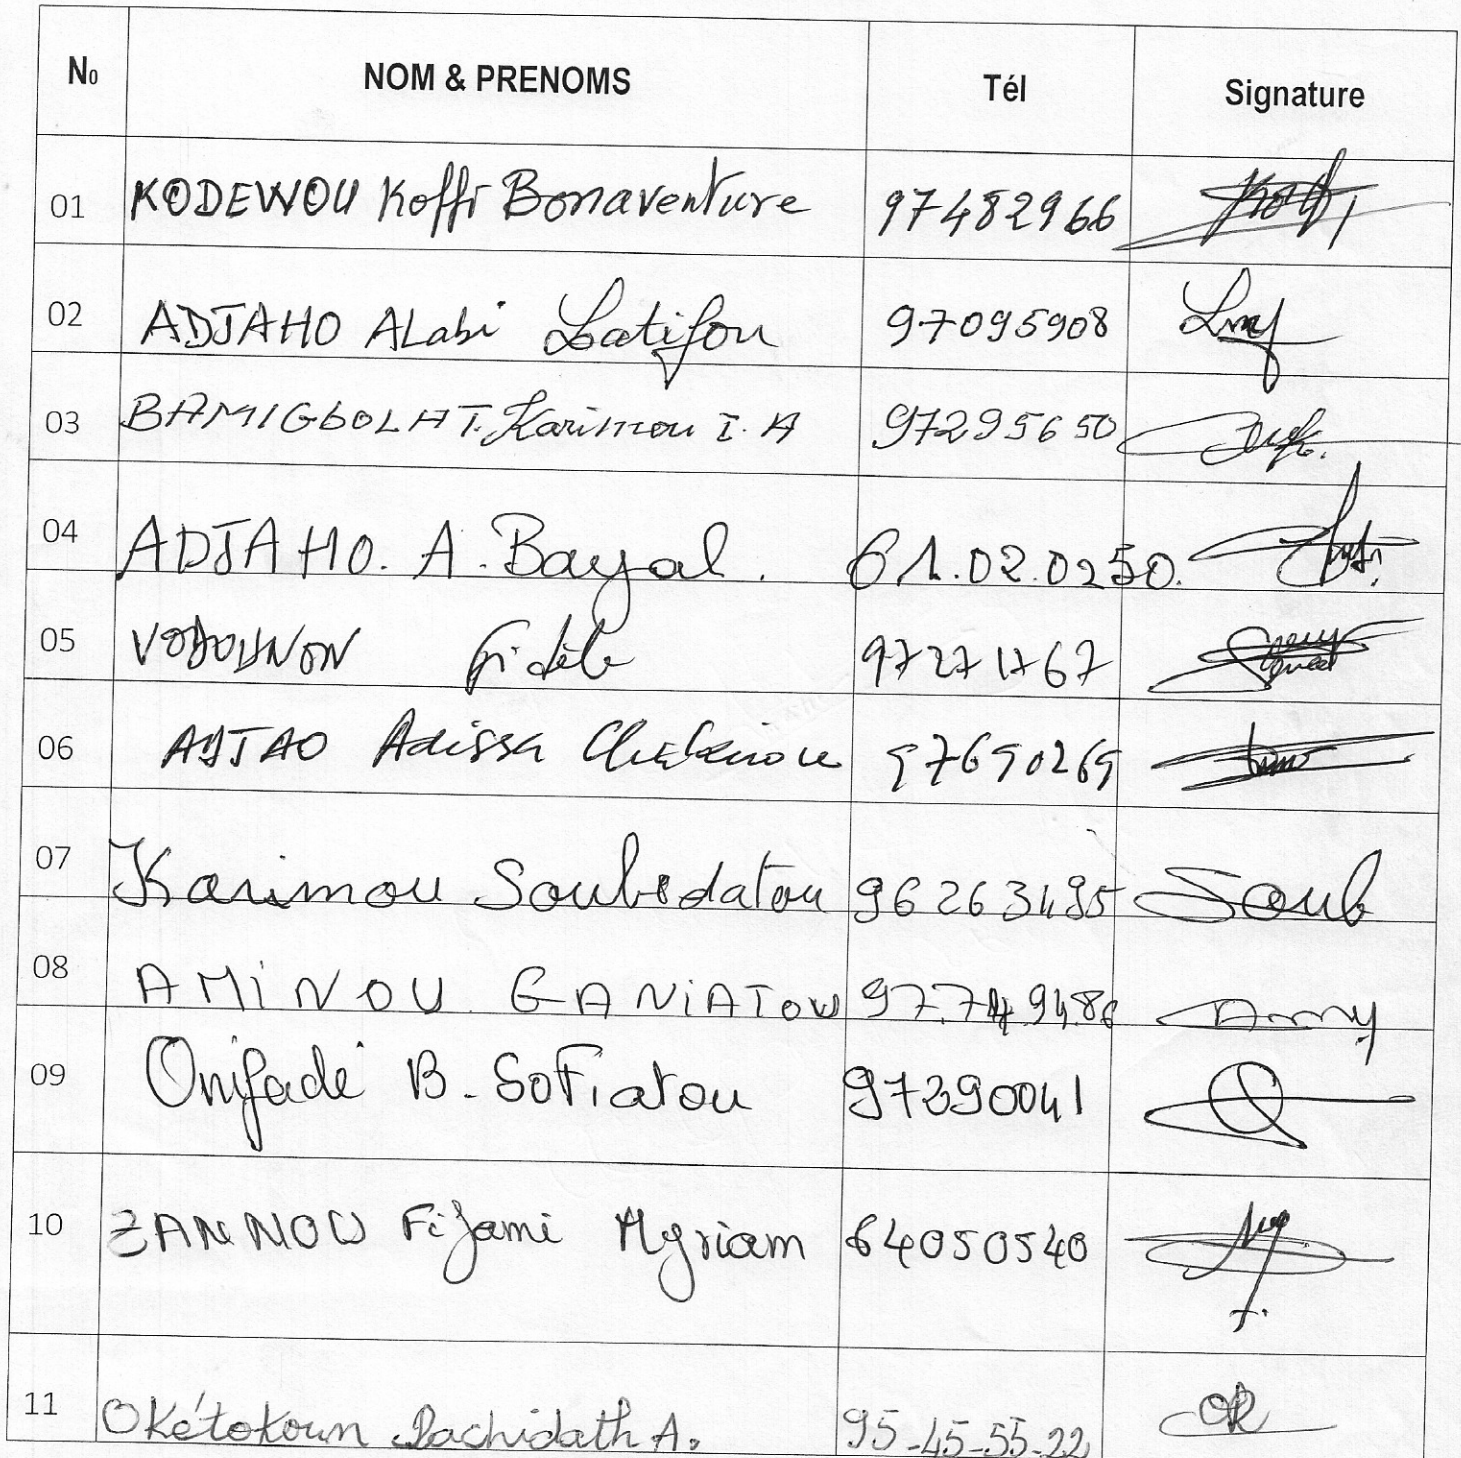 N0 NOM & PRENOMS Tél Signature
01 KODEWOU Koffi Bonaventure 97482966
02 ADJAHO ALabi Latifou 97095908
03 BAMIGbOLA T. Karimou I. A 97295650
04 ADJAHO. A. Bayal. 61.02.0250.
05 VODOUNON Fidèle 97271767
06 ADJAO Adissa 97690269
07 Karimou Soubedatou 96263495 Soub
08 AMiNOU GANiATOU 97.74.94.86 Amy
09 Onifadé B. SoFiatou 97390041
10 ZANNOU Fifami Myriam 64050540
11 Okétokoun Rachidath A. 95-45-55-22 OR